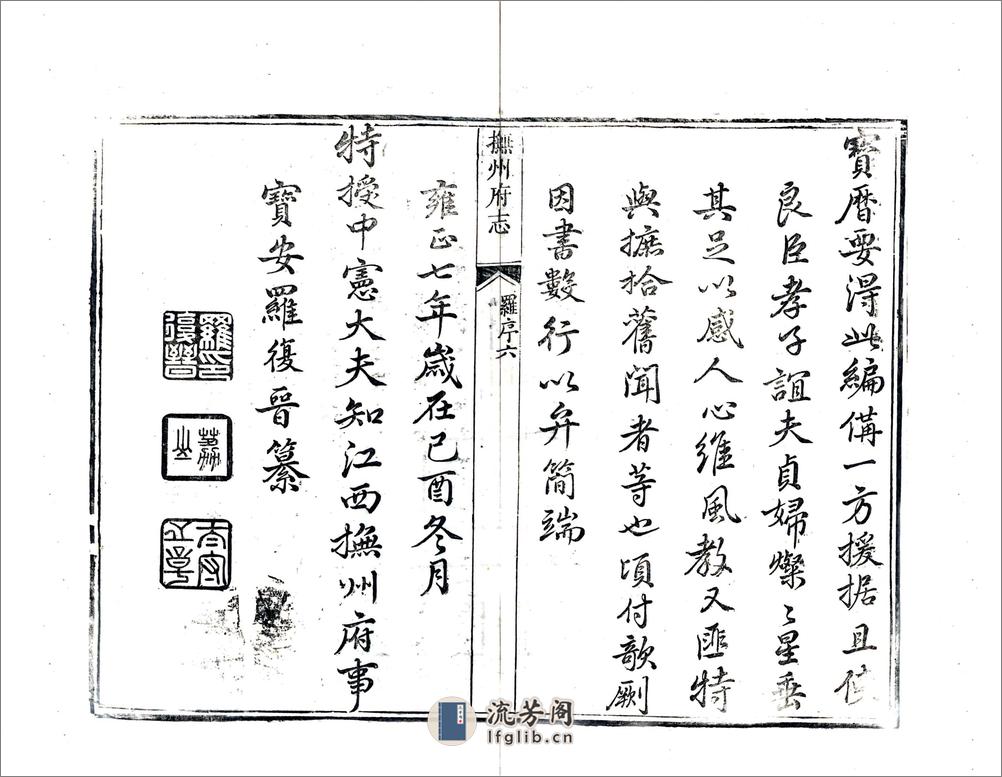 寶曆要得此編備一方援据且使
良臣孝子誼夫貞婦燦〻星垂
其足以感人心維風教又匪特
與摭拾舊聞者等也頃付歌劂
因書數行以弁簡端
撫州府志
羅序六
雍正七年歲在己酉冬月
特授中憲大夫知江西撫州府事
寶安羅復晉纂
羅印復晉
荔山
太守之章
流芳阁
lfglib.cn